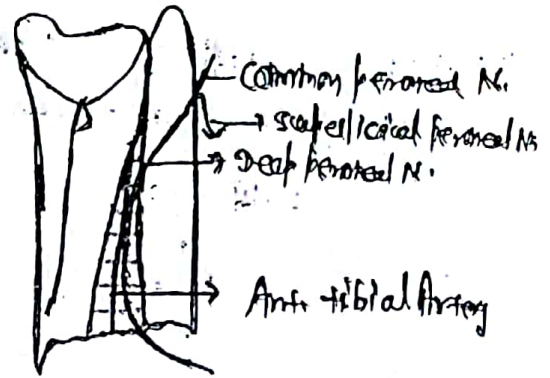 Common peroneal N.
Superficial peroneal N.
Deep peroneal N.
Ant. tibial Artery